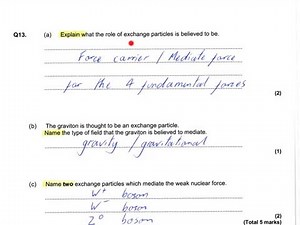 Q13. (a) Explain what the role of exchange particles is believed to be.
Force carrier / Mediate force
for the 4 fundamental forces
(2)
(b) The graviton is thought to be an exchange particle.
Name the type of field that the graviton is believed to mediate.
gravity / gravitational
(1)
(c) Name two exchange particles which mediate the weak nuclear force.
W+ boson
W- boson
Z0 boson
(2)
(Total 5 marks)